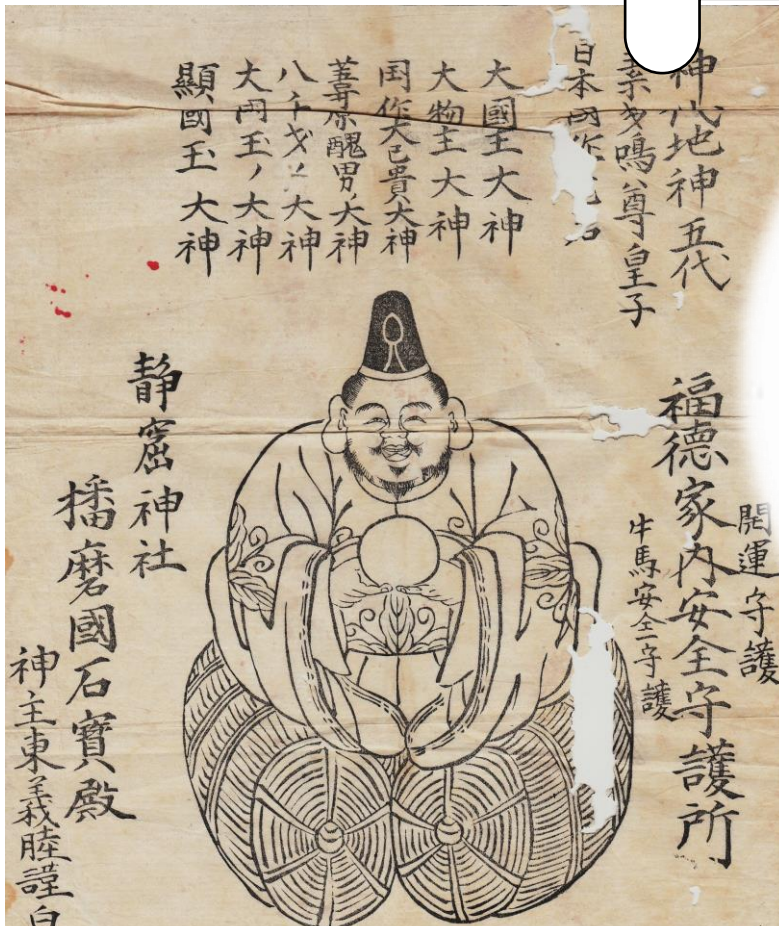 神代地神五代
素戔嗚尊皇子
日本國作
大國王大神
大物主大神
国作大己貴大神
葦原醜男ノ大神
八千戈ノ大神
大国玉ノ大神
顯國玉大神
開運守護
福德家内安全守護所
牛馬安全守護
静窟神社
播磨國石寶殿
神主東義睦謹白